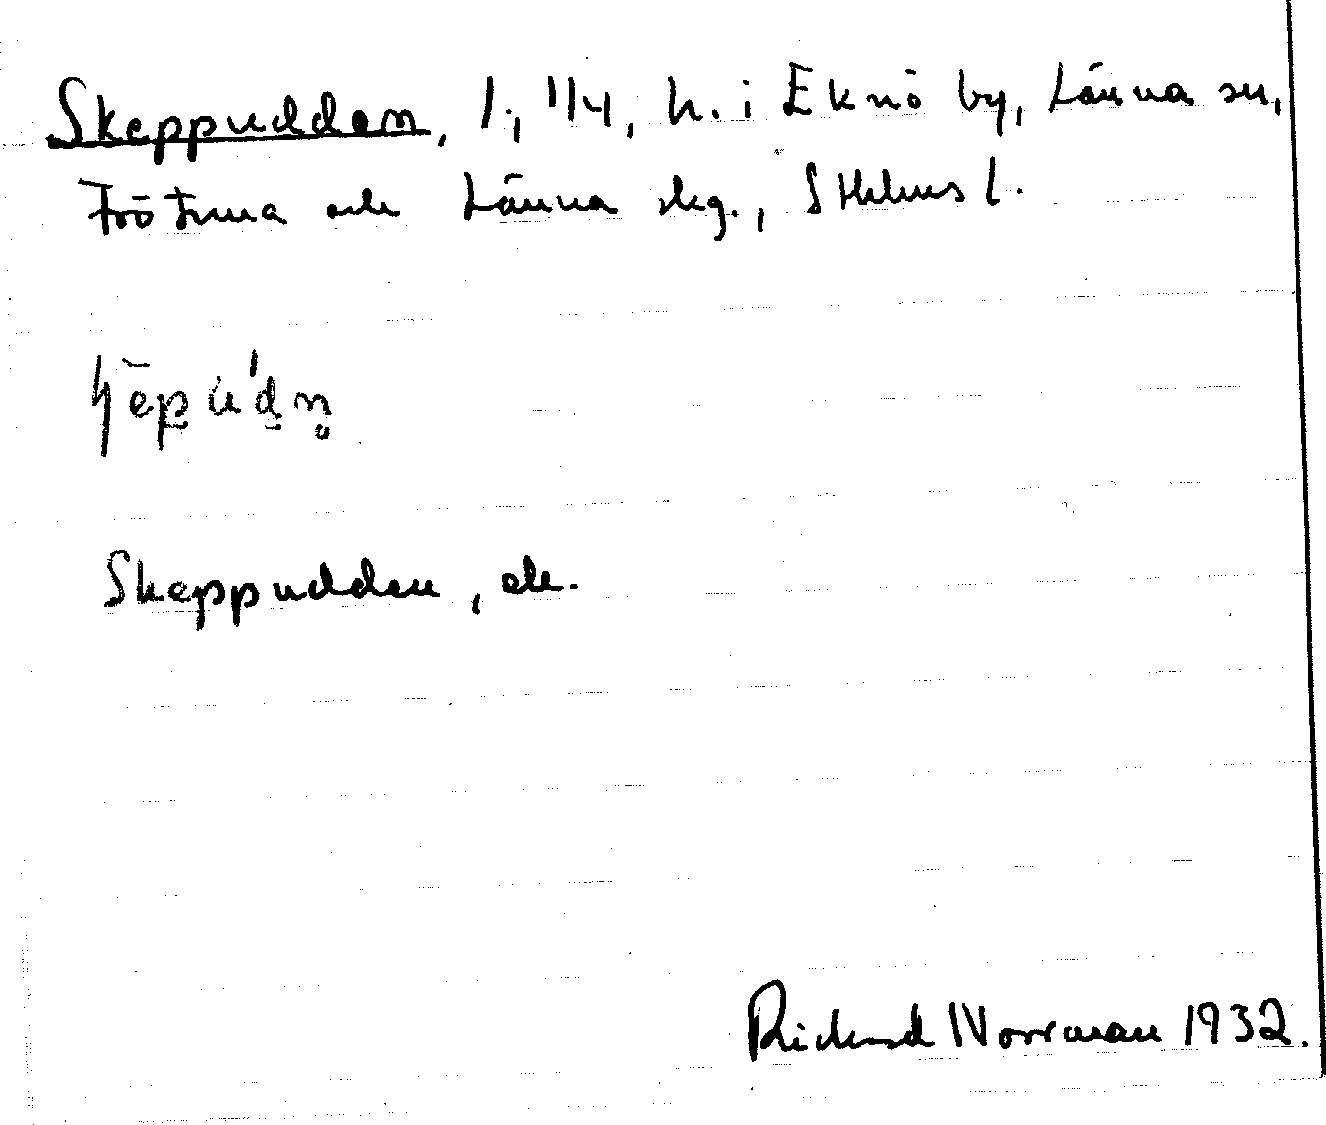 Skeppudden, l., 1/4, h. i Eknö by, Länna sn,
Frötuna och Länna skg., Sthlms l.
Skeppudden, ek.
Rickard Norrman 1932.